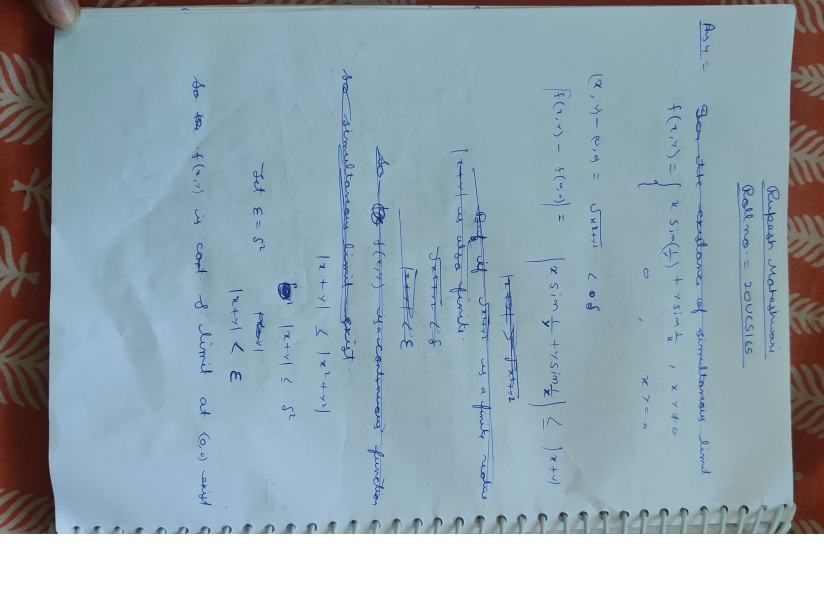 Rupesh Maheshwari
Roll no. = 20UCS165
Ans 4 = For the existance of simultaneous limit
f(x,y) = { x sin(1/y) + y sin 1/x , xy ≠ 0
0 , xy = 0
(x,y) - (0,0) = √x²+y² < δ
|f(x,y) - f(0,0)| = |x sin 1/y + y sin 1/x| ≤ |x+y|
But if √x²+y² is a finite value
|x+y| is also finite.
√x²+y² < δ
|x+y| < ε
So f(x,y) is continuous function
so simultaneous limit exist.
|x+y| ≤ |x²+y²|
|x+y| ≤ δ²
Let ε = δ²
|x+y| < ε
So the f(x,y) is cont. & limit at (0,0) exist